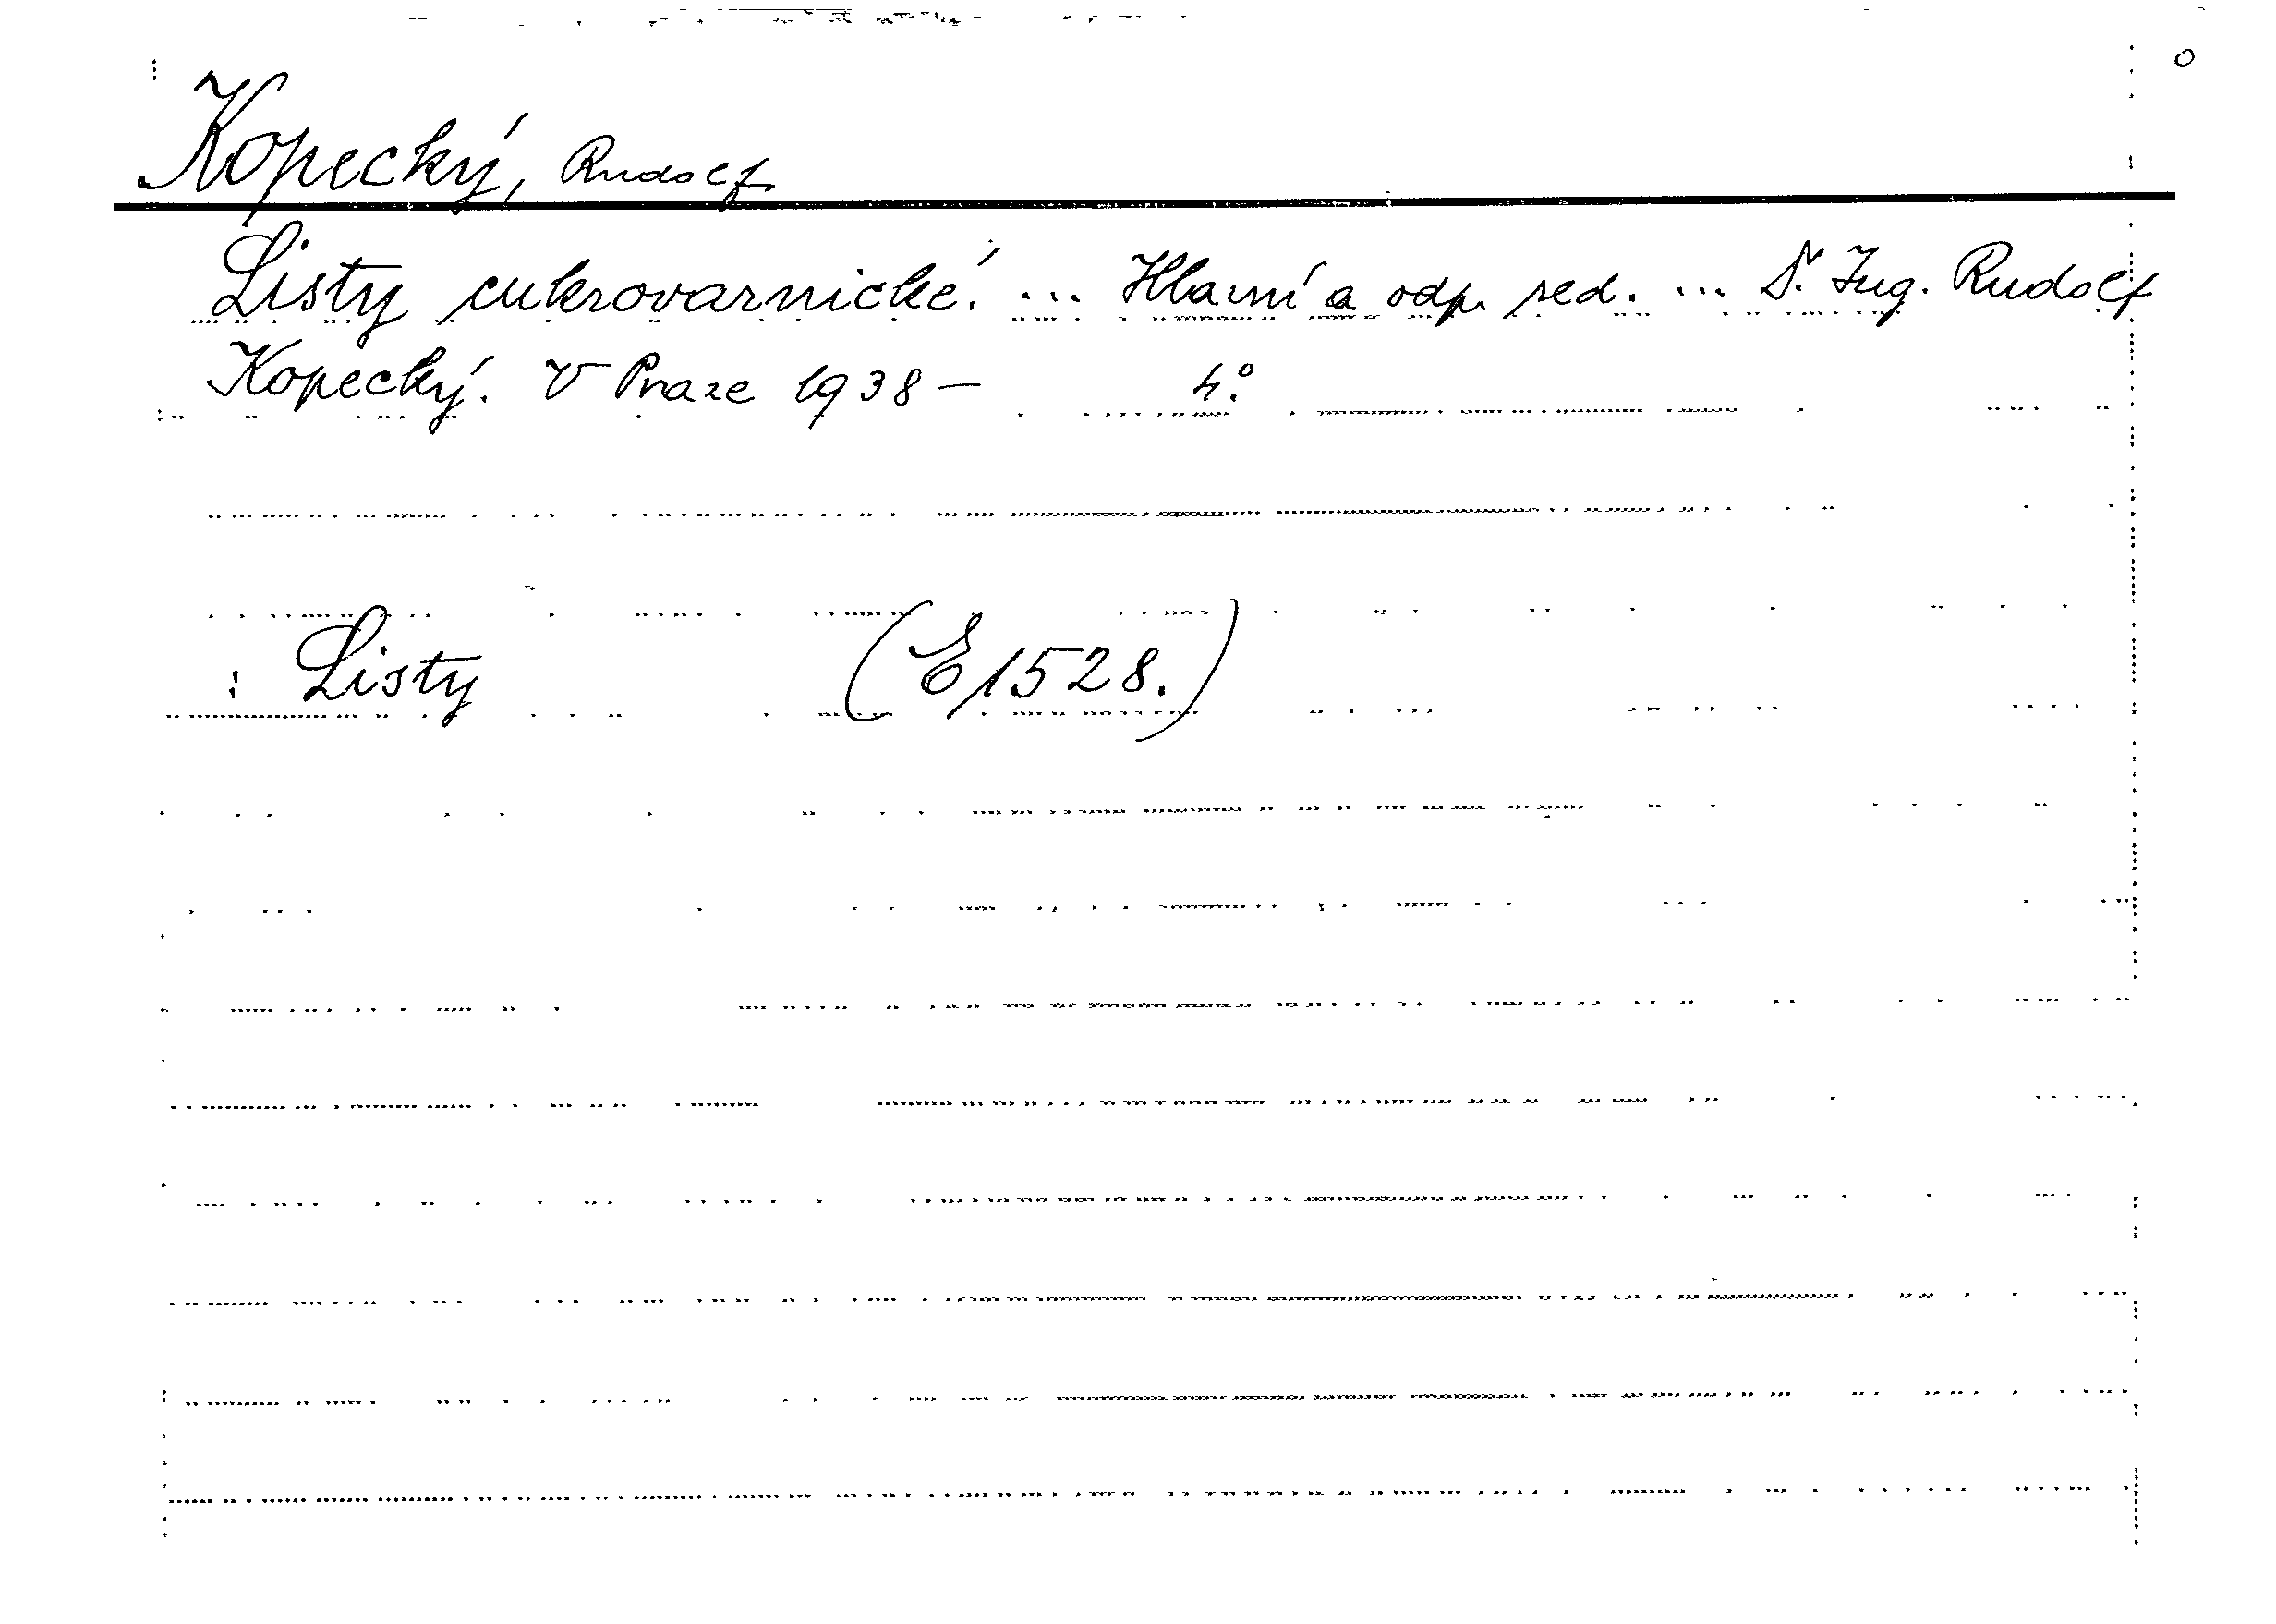 Kopecký, Rudolf
Listy cukrovarnické. ... Hlavní a odp. red. ... Dr. Ing. Rudolf
Kopecký. V Praze 1938 – 4°.
: Listy (E 1528.)